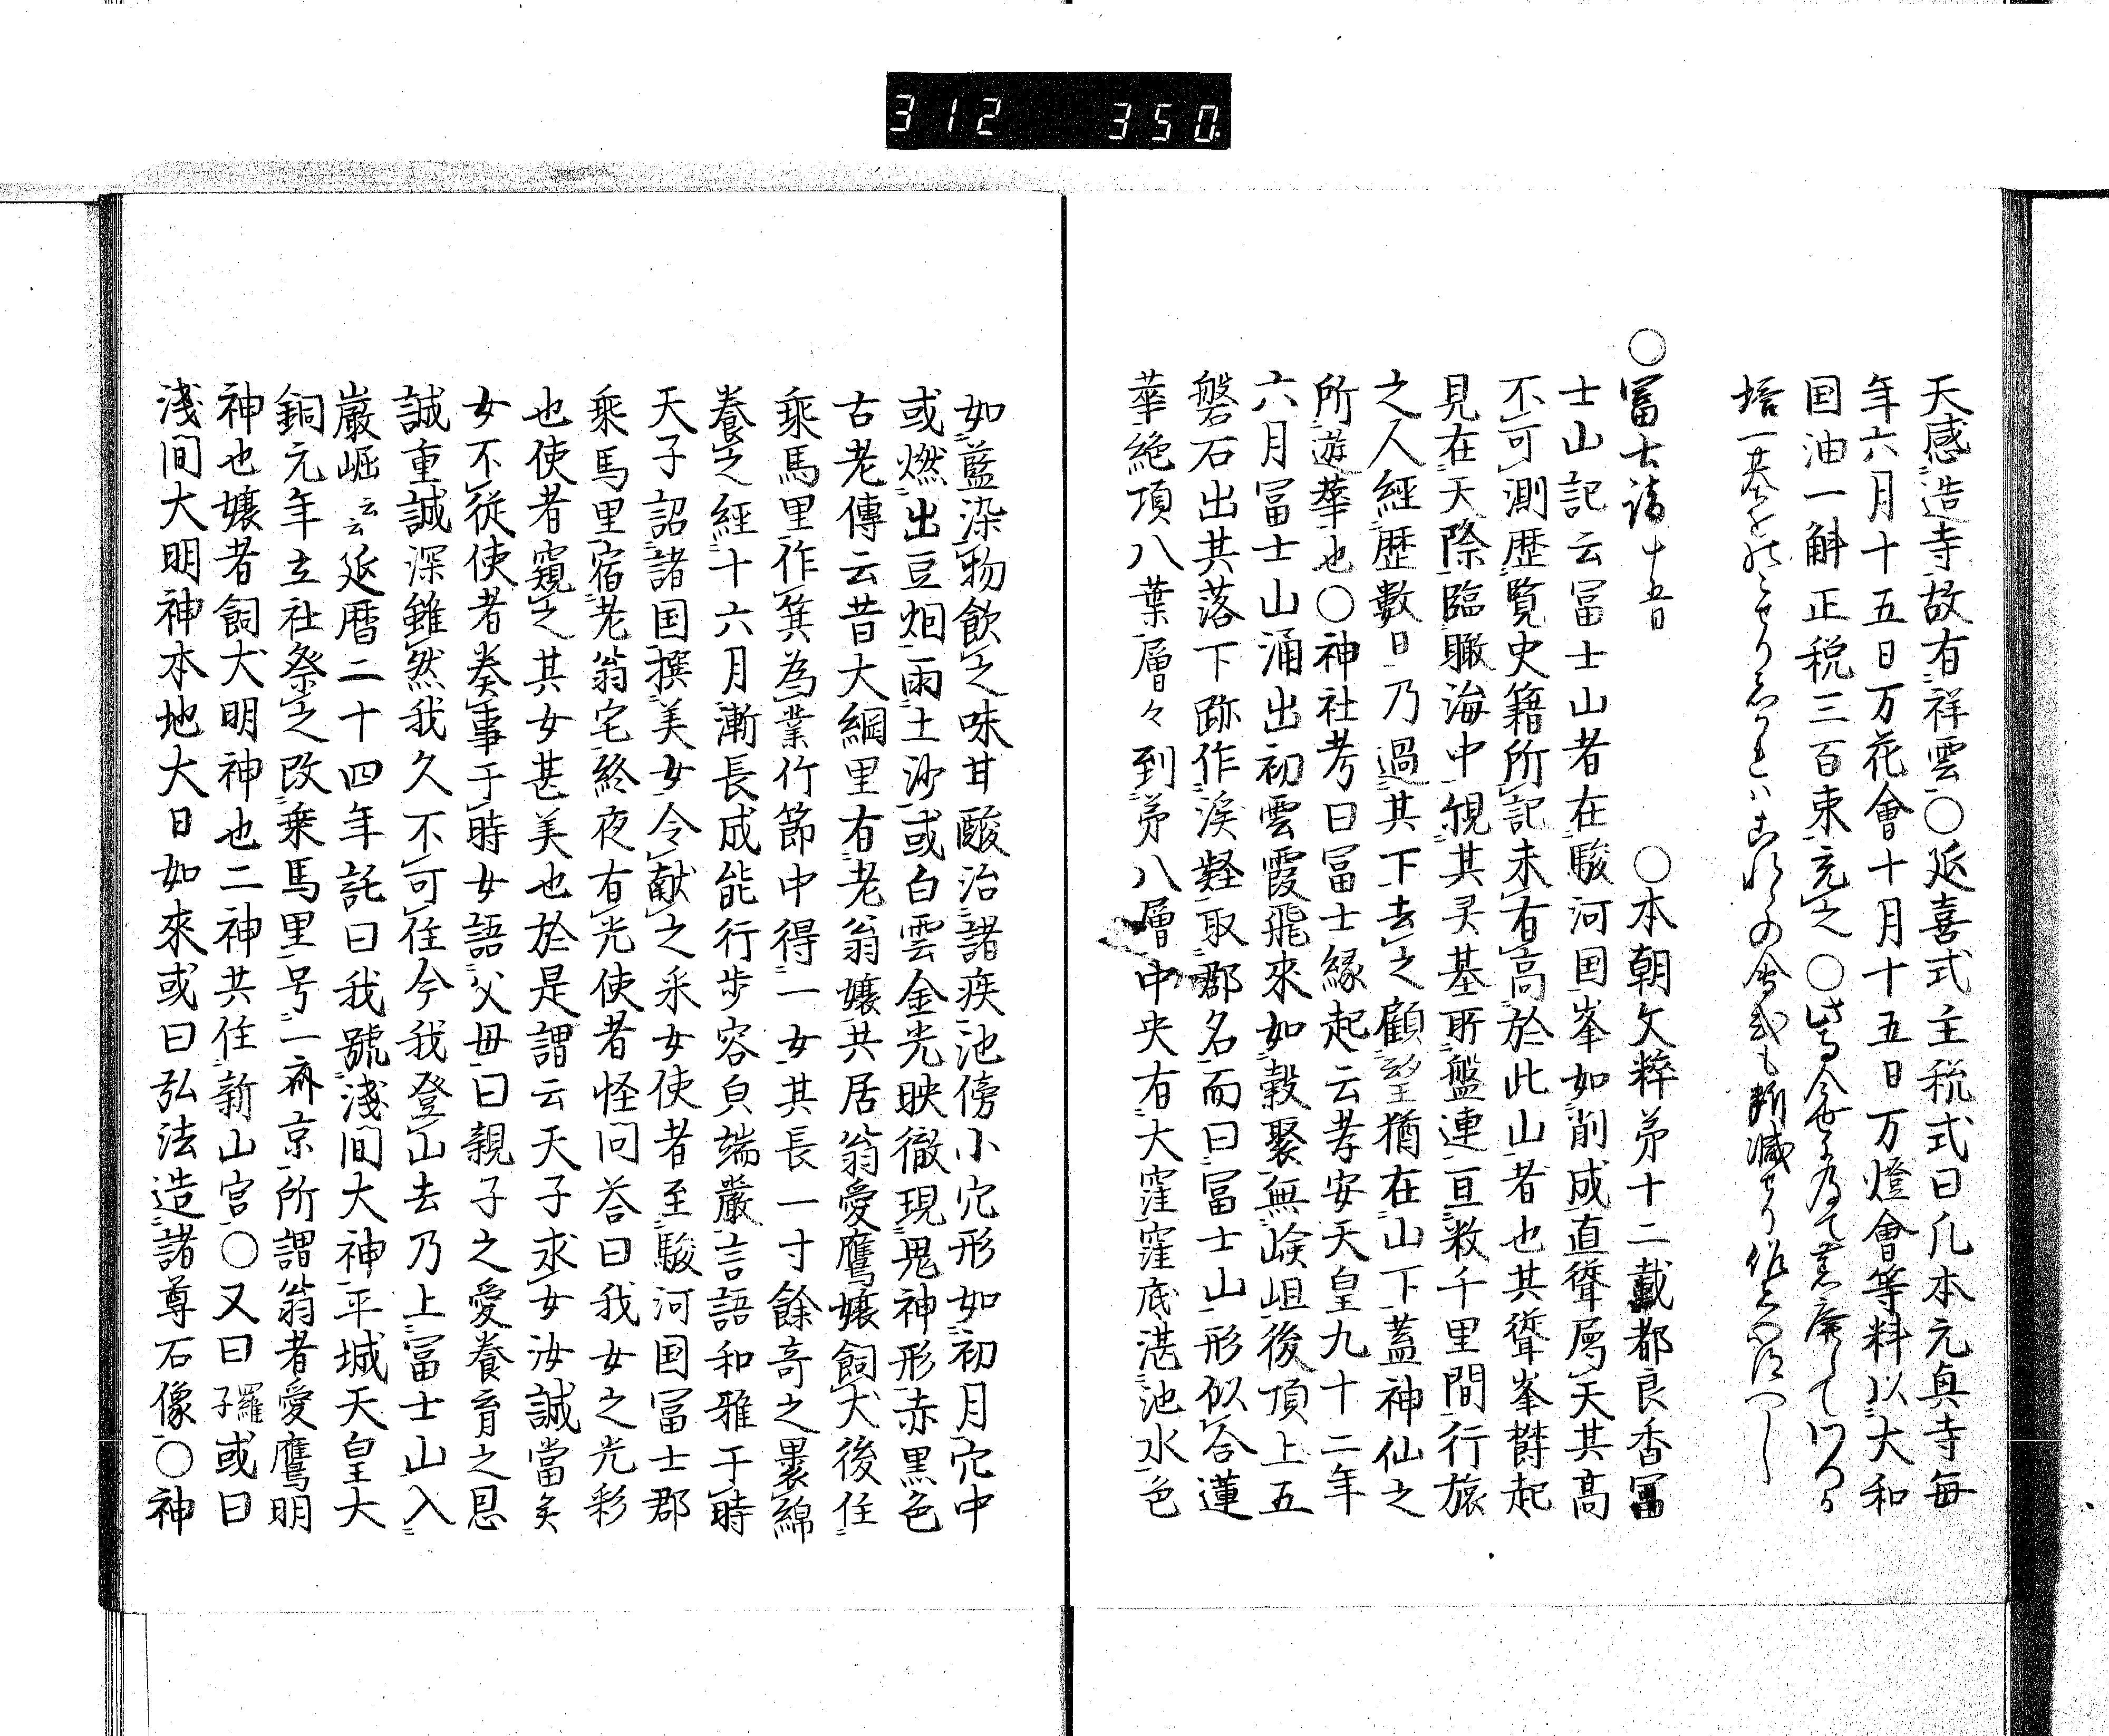 312 350.
天感造寺故有祥雲〇延喜式主税式曰凡本元興寺毎
年六月十五日万花會十月十五日万燈會等料以大和
国油一斛正税三百束充之〇
塔一基を
〇冨士詣十五日 〇本朝文粹第十二載都良香冨
士山記云冨士山者在駿河国峯如削成直聳属天其高
不可測歴覧史籍所記未有高於此山者也其聳峯欝起
見在天際臨瞰海中観其灵基所盤連亘数千里間行旅
之人經歴數日乃過其下去之顧望猶在山下蓋神仙之
所遊萃也〇神社考曰冨士縁起云孝安天皇九十二年
六月冨士山涌出初雲霞飛來如穀聚無嶮岨後頂上五
磐石出其落下跡作渓壑取郡名而曰冨士山形似合蓮
華絶頂八葉層々到第八層中央有大窪窪底湛池水色
如藍染物飲之味甘酸治諸疾池傍小穴形如初月穴中
或燃出豆烟雨土沙或白雲金光映徹現鬼神形赤黒色
古老傳云昔大綱里有老翁嬢共居翁愛鷹嬢飼犬後住
乗馬里作箕為業竹節中得一女其長一寸餘奇之裹綿
養之經十六月漸長成能行歩容皃端嚴言語和雅于時
天子詔諸国撰美女令献之采女使者至駿河国冨士郡
乗馬里宿老翁宅終夜有光使者怪问答曰我女之光彩
也使者窺之其女甚美也於是謂云天子求女汝誠當矣
女不従使者奏事于時女語父母曰親子之愛養育之恩
誠重誠深雖然我久不可住今我登山去乃上冨士山入
巌崛云云延暦二十四年託曰我號淺间大神平城天皇大
銅元年立社祭之改乗馬里号一斎京所謂翁者愛鷹明
神也嬢者飼犬明神也二神共住新山宮〇又曰羅子或曰
淺间大明神本地大日如來或曰弘法造諸尊石像〇神